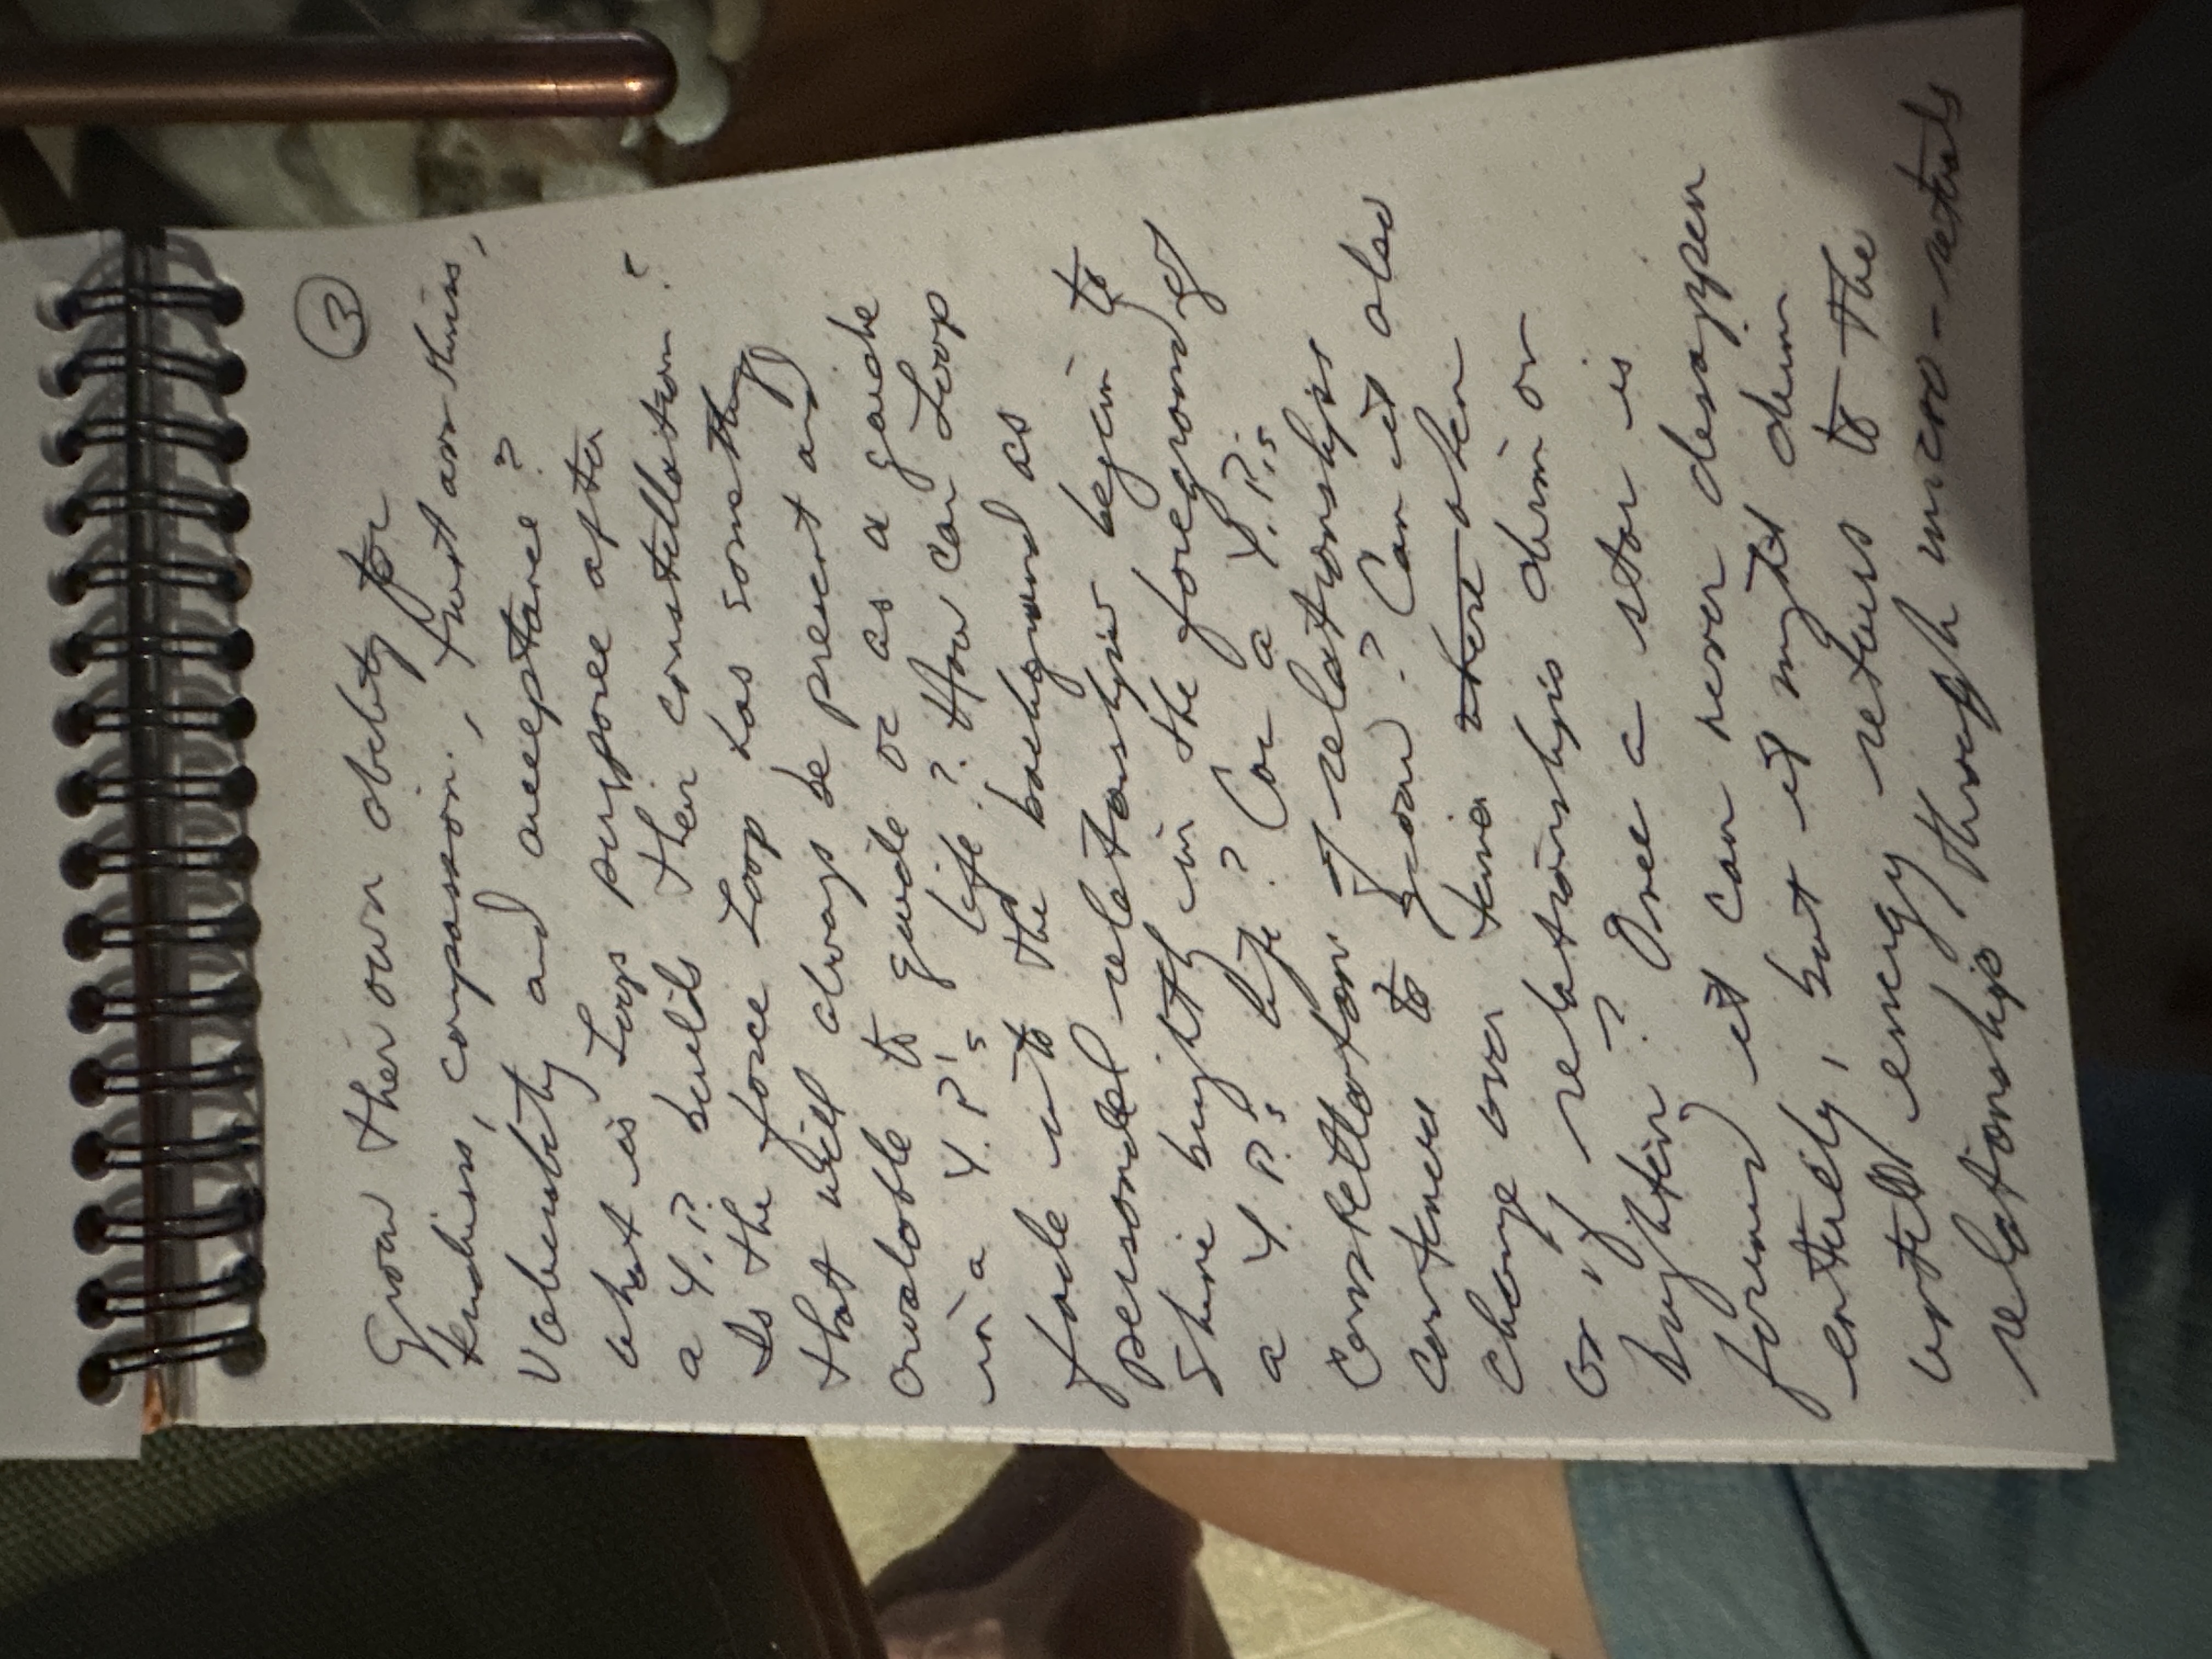 ③
Grow their own ability for
kindness, compassion, trust
Vulnerability and acceptance?
what is Loops purpose after
a Y.P. builds their constellation?
Is the force Loop has something
that will always be present and
available to guide or as a guide
in a Y.P.'s life? How can Loop
fade into the background as
personal relationships begin to
shine brightly in the foreground of
a Y.P.'s life? Can a Y.P.'s
constellation of relationships
continue to grow? Can it also
change over time where when
or if relationships dim or
brighten? Once a star is
formed it can never disappear
entirely, but it might dim
until energy returns to the
relationship through micro-rituals